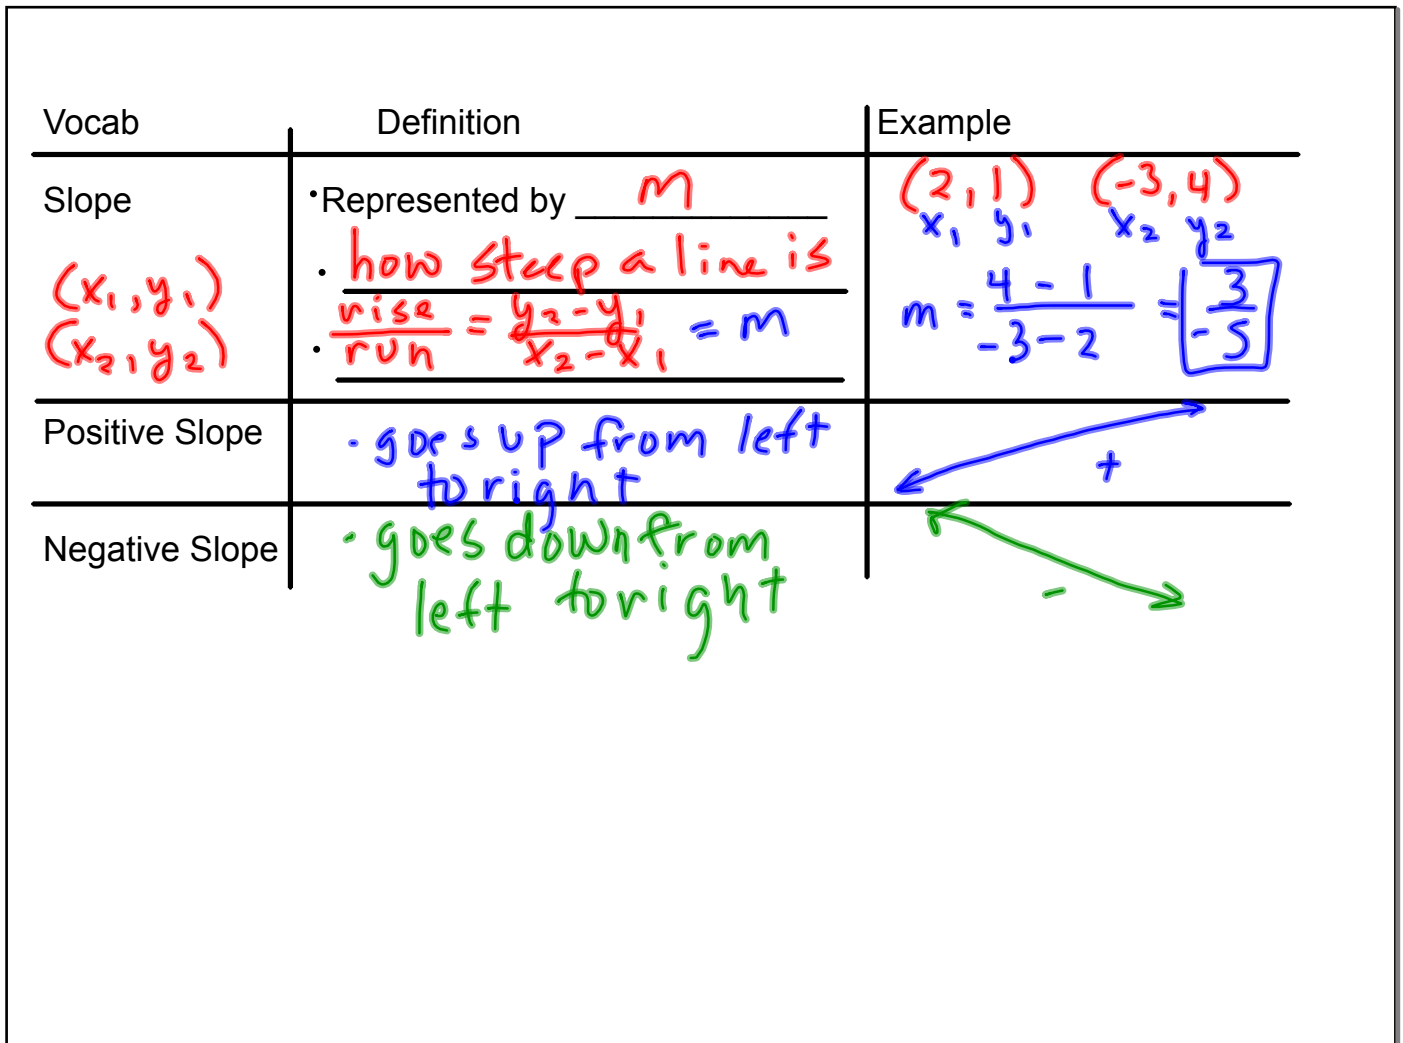 Vocab Definition Example
Slope
(x₁, y₁)
(x₂, y₂)
• Represented by m
• how steep a line is
• rise/run = y₂-y₁/x₂-x₁ = m
(2, 1) (-3, 4)
x₁ y₁ x₂ y₂
m = 4 - 1/-3 - 2 = 3/-5
Positive Slope
• goes up from left
to right
+
Negative Slope
• goes down from
left to right
-